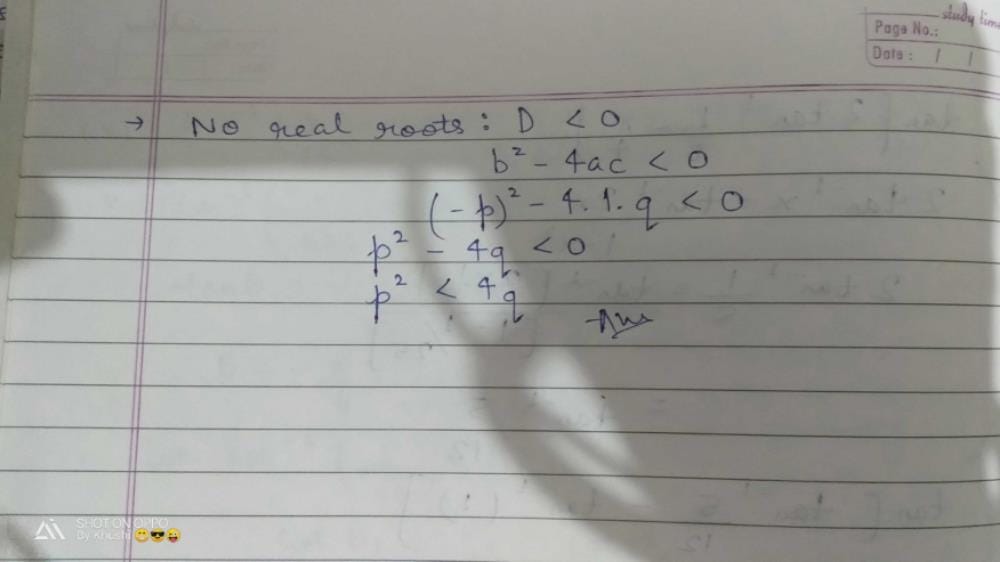 study time
Page No.:
Date: / /
→ No real roots: D < 0
b² - 4ac < 0
(-p)² - 4.1.q < 0
p² - 4q < 0
p² < 4q
Ans
SHOT ON OPPO
By Khushi 😁😎😜